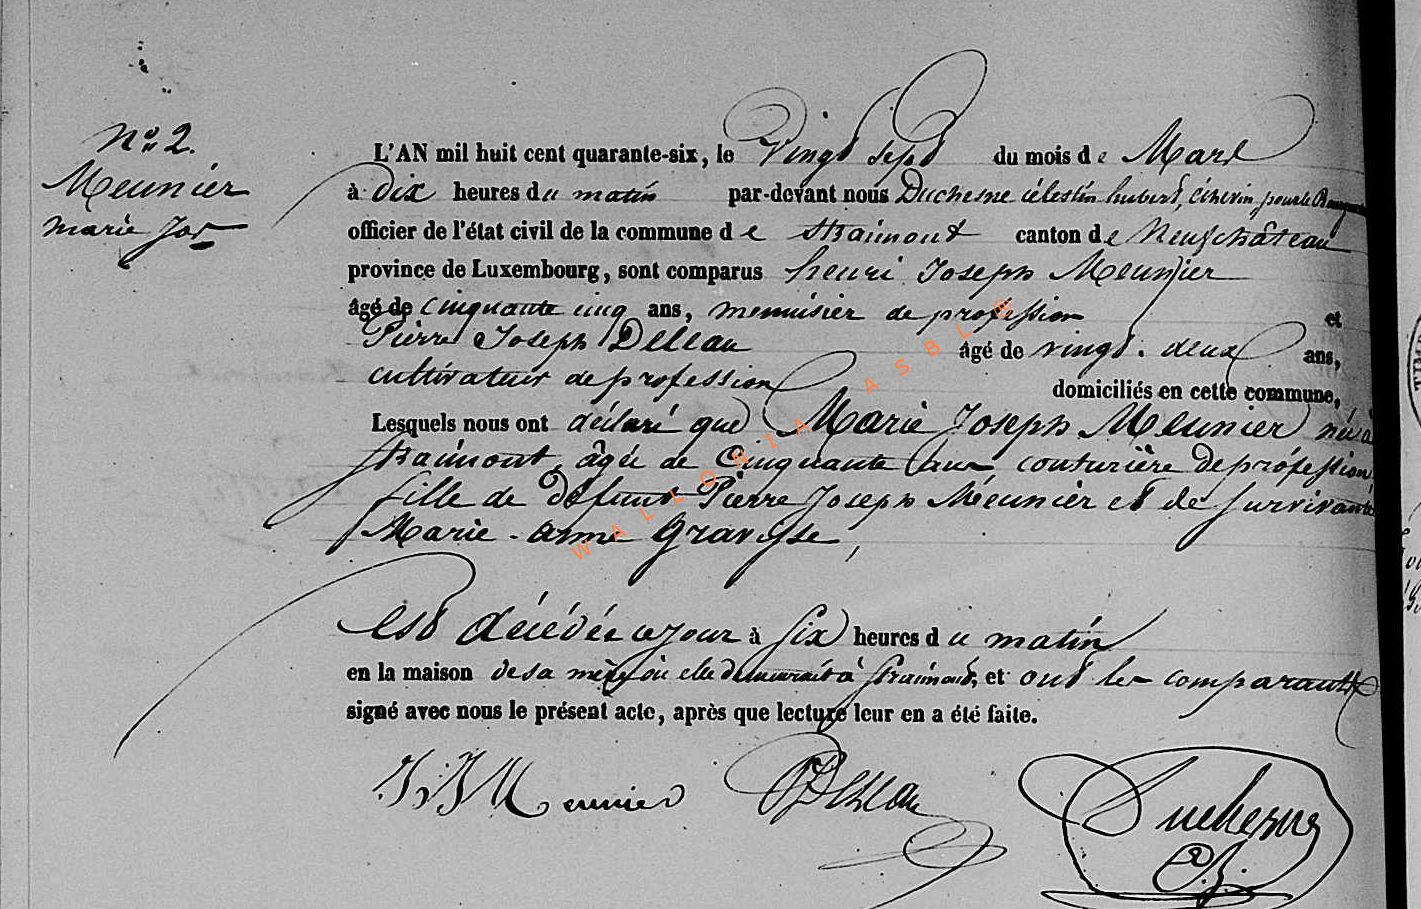 No 2.
Meunier
marie Jos
L'AN mil huit cent quarante-six, le Vingt Sept du mois de Mars
à dix heures du matin par-devant nous Duchesne célestin hubert, échevin, pour le
officier de l'état civil de la commune de Straimont canton de Neufchâteau
province de Luxembourg, sont comparus henri Joseph Meunier
âgé de cinquante cinq ans, menuisier de profession et
Pierre Joseph Deleau âgé de vingt-deux ans,
cultivateur de profession domiciliés en cette commune,
Lesquels nous ont déclaré que Marie Joseph Meunier née à
Straimont, âgée de Cinquante ans couturière de profession
fille de défunt Pierre Joseph Meunier et de survivante
Marie-anne
est décédée ce jour à six heures du matin
en la maison de sa mère où elle demeurait à Straimont, et ont les comparants
signé avec nous le présent acte, après que lecture leur en a été faite.
Meunier Deleau Duchesne
WALLONIA ASBL